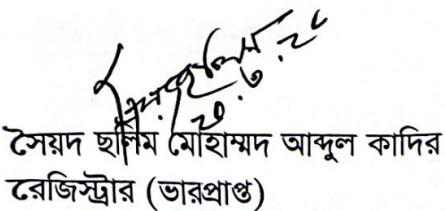 সৈয়দ ছলিম মোহাম্মদ আব্দুল কাদির
রেজিস্ট্রার (ভারপ্রাপ্ত)